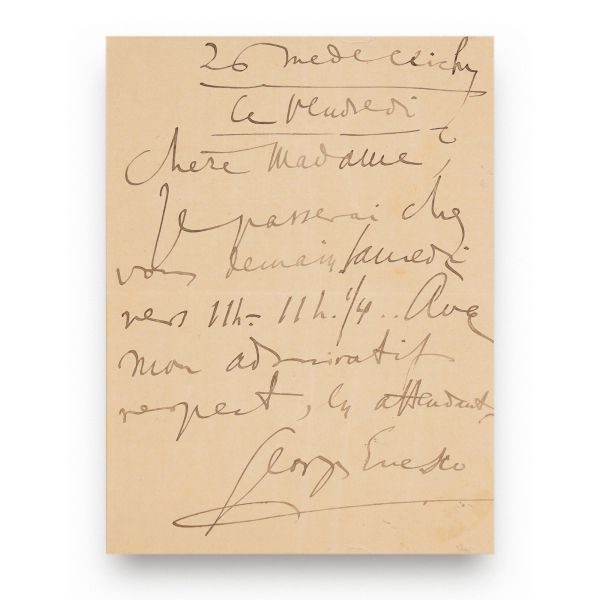 26 rue de Clichy
Ce Vendredi
Chère Madame,
Je passerai chez
vous demain, Samedi
vers 11h - 11h. 1/4.. Avec
mon admiratif
respect, en attendant,
Georges Enesco